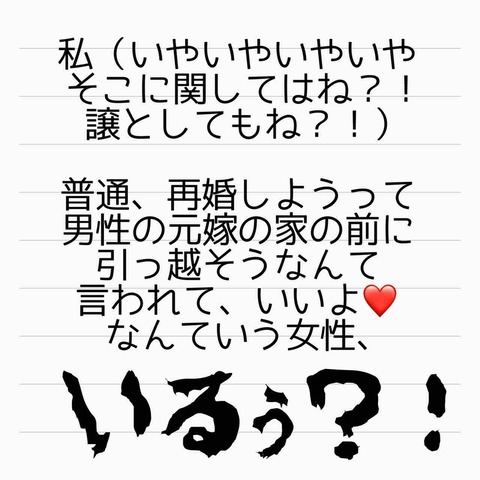 私（いやいやいやいや
そこに関してはね？！
譲としてもね？！）
普通、再婚しようって
男性の元嫁の家の前に
引っ越そうなんて
言われて、いいよ❤️
なんていう女性、
いるぅ？！